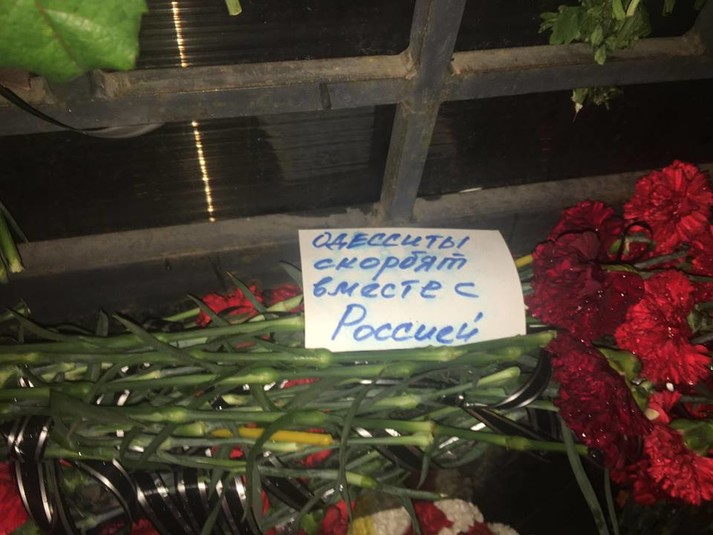 ОДЕССИТЫ
скорбят
вместе с
Россией